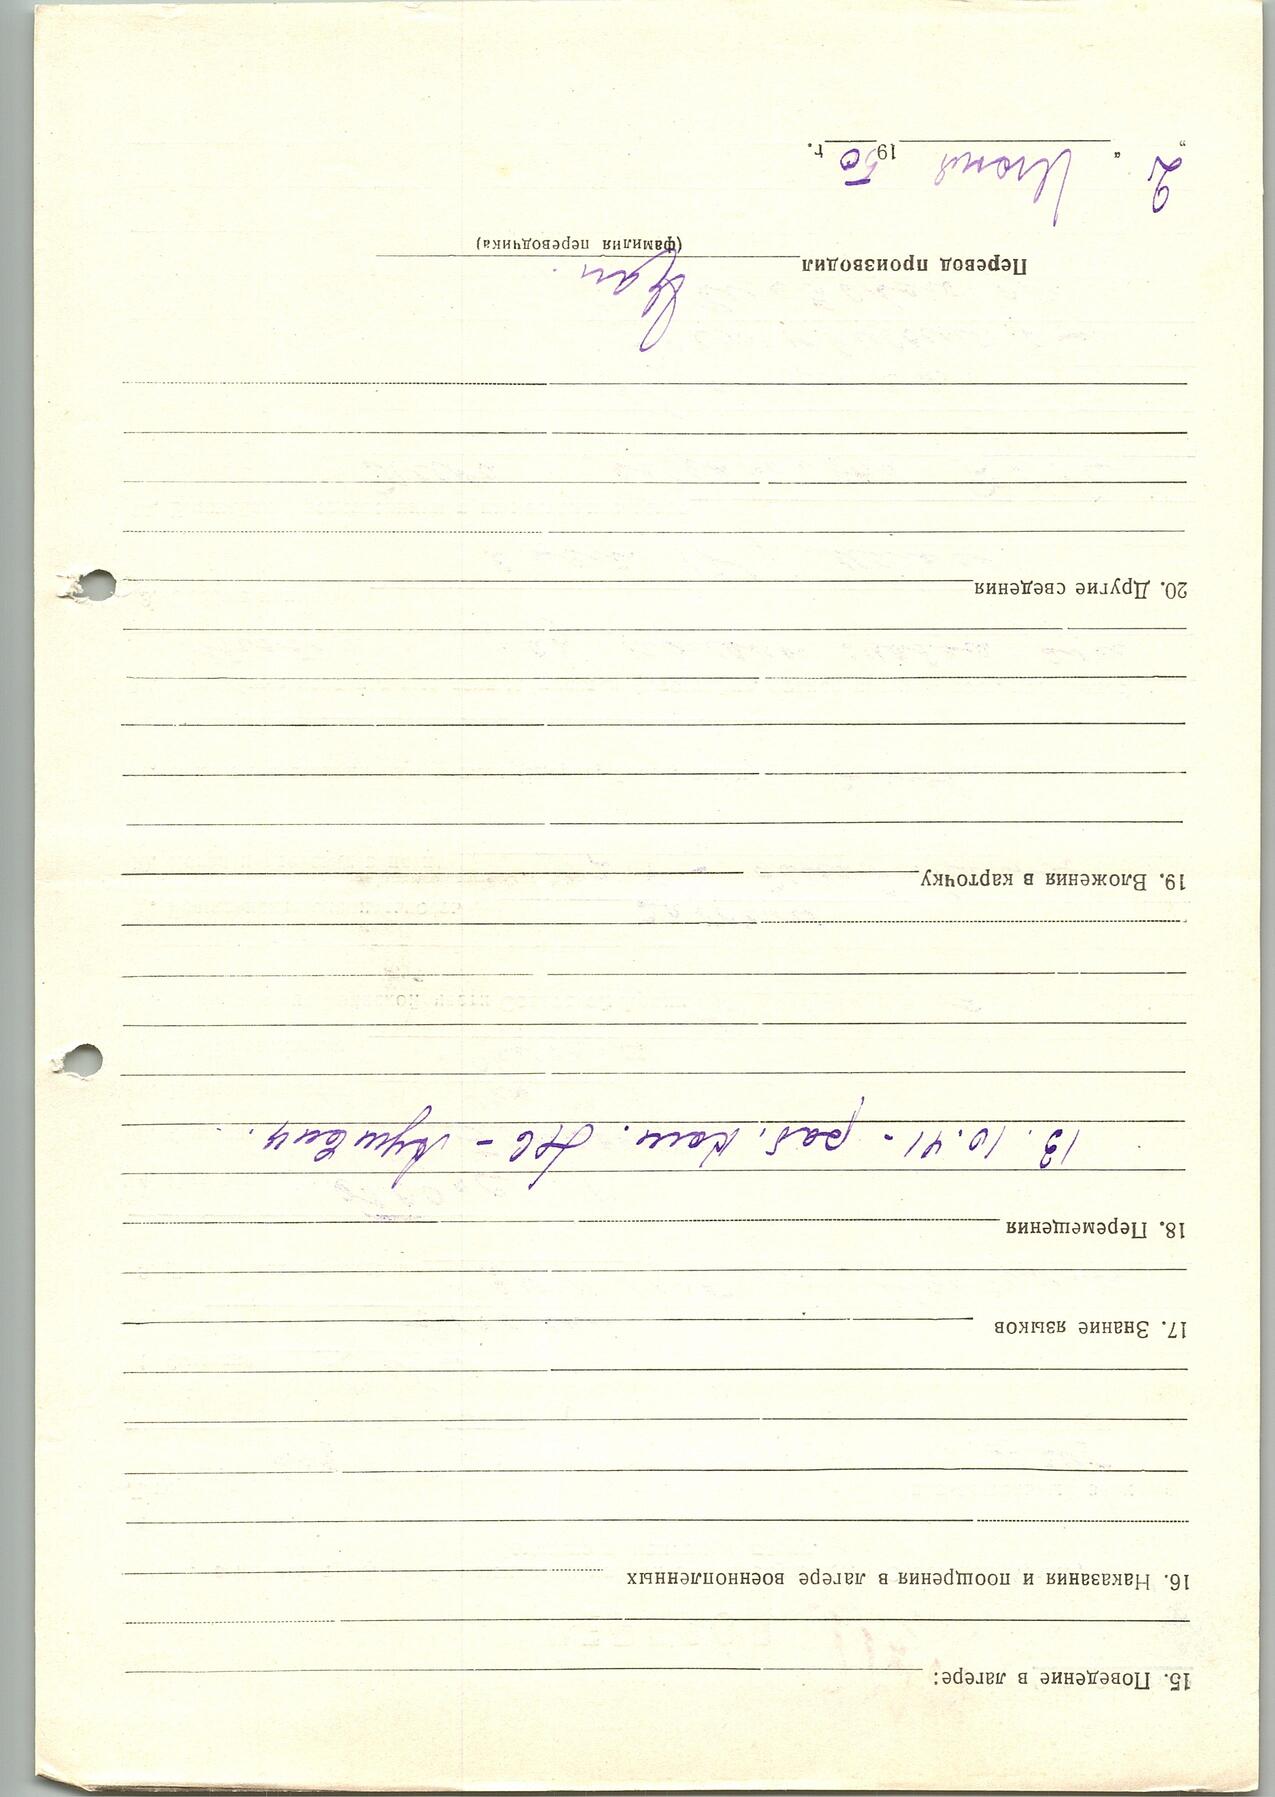 15. Поведение в лагере:
16. Наказания и поощрения в лагере военнопленных
17. Знание языков
18. Перемещения
13. 10. 41 - раб. ком.
19. Вложения в карточку
20. Другие сведения
Перевод производил
(фамилия переводчика)
„2“ Июня 1950 г.